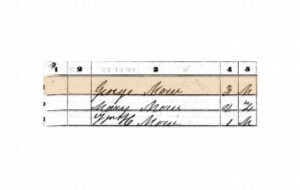 1 2 3 4 5
George Mowe 3 M
Mary Mowe 2 F
Wm H Mowe 1 M